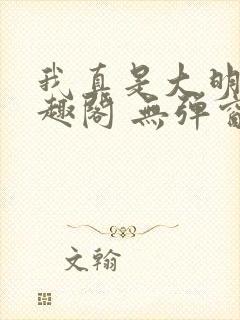 我真是大明
趣阁 無弹窗
文翰